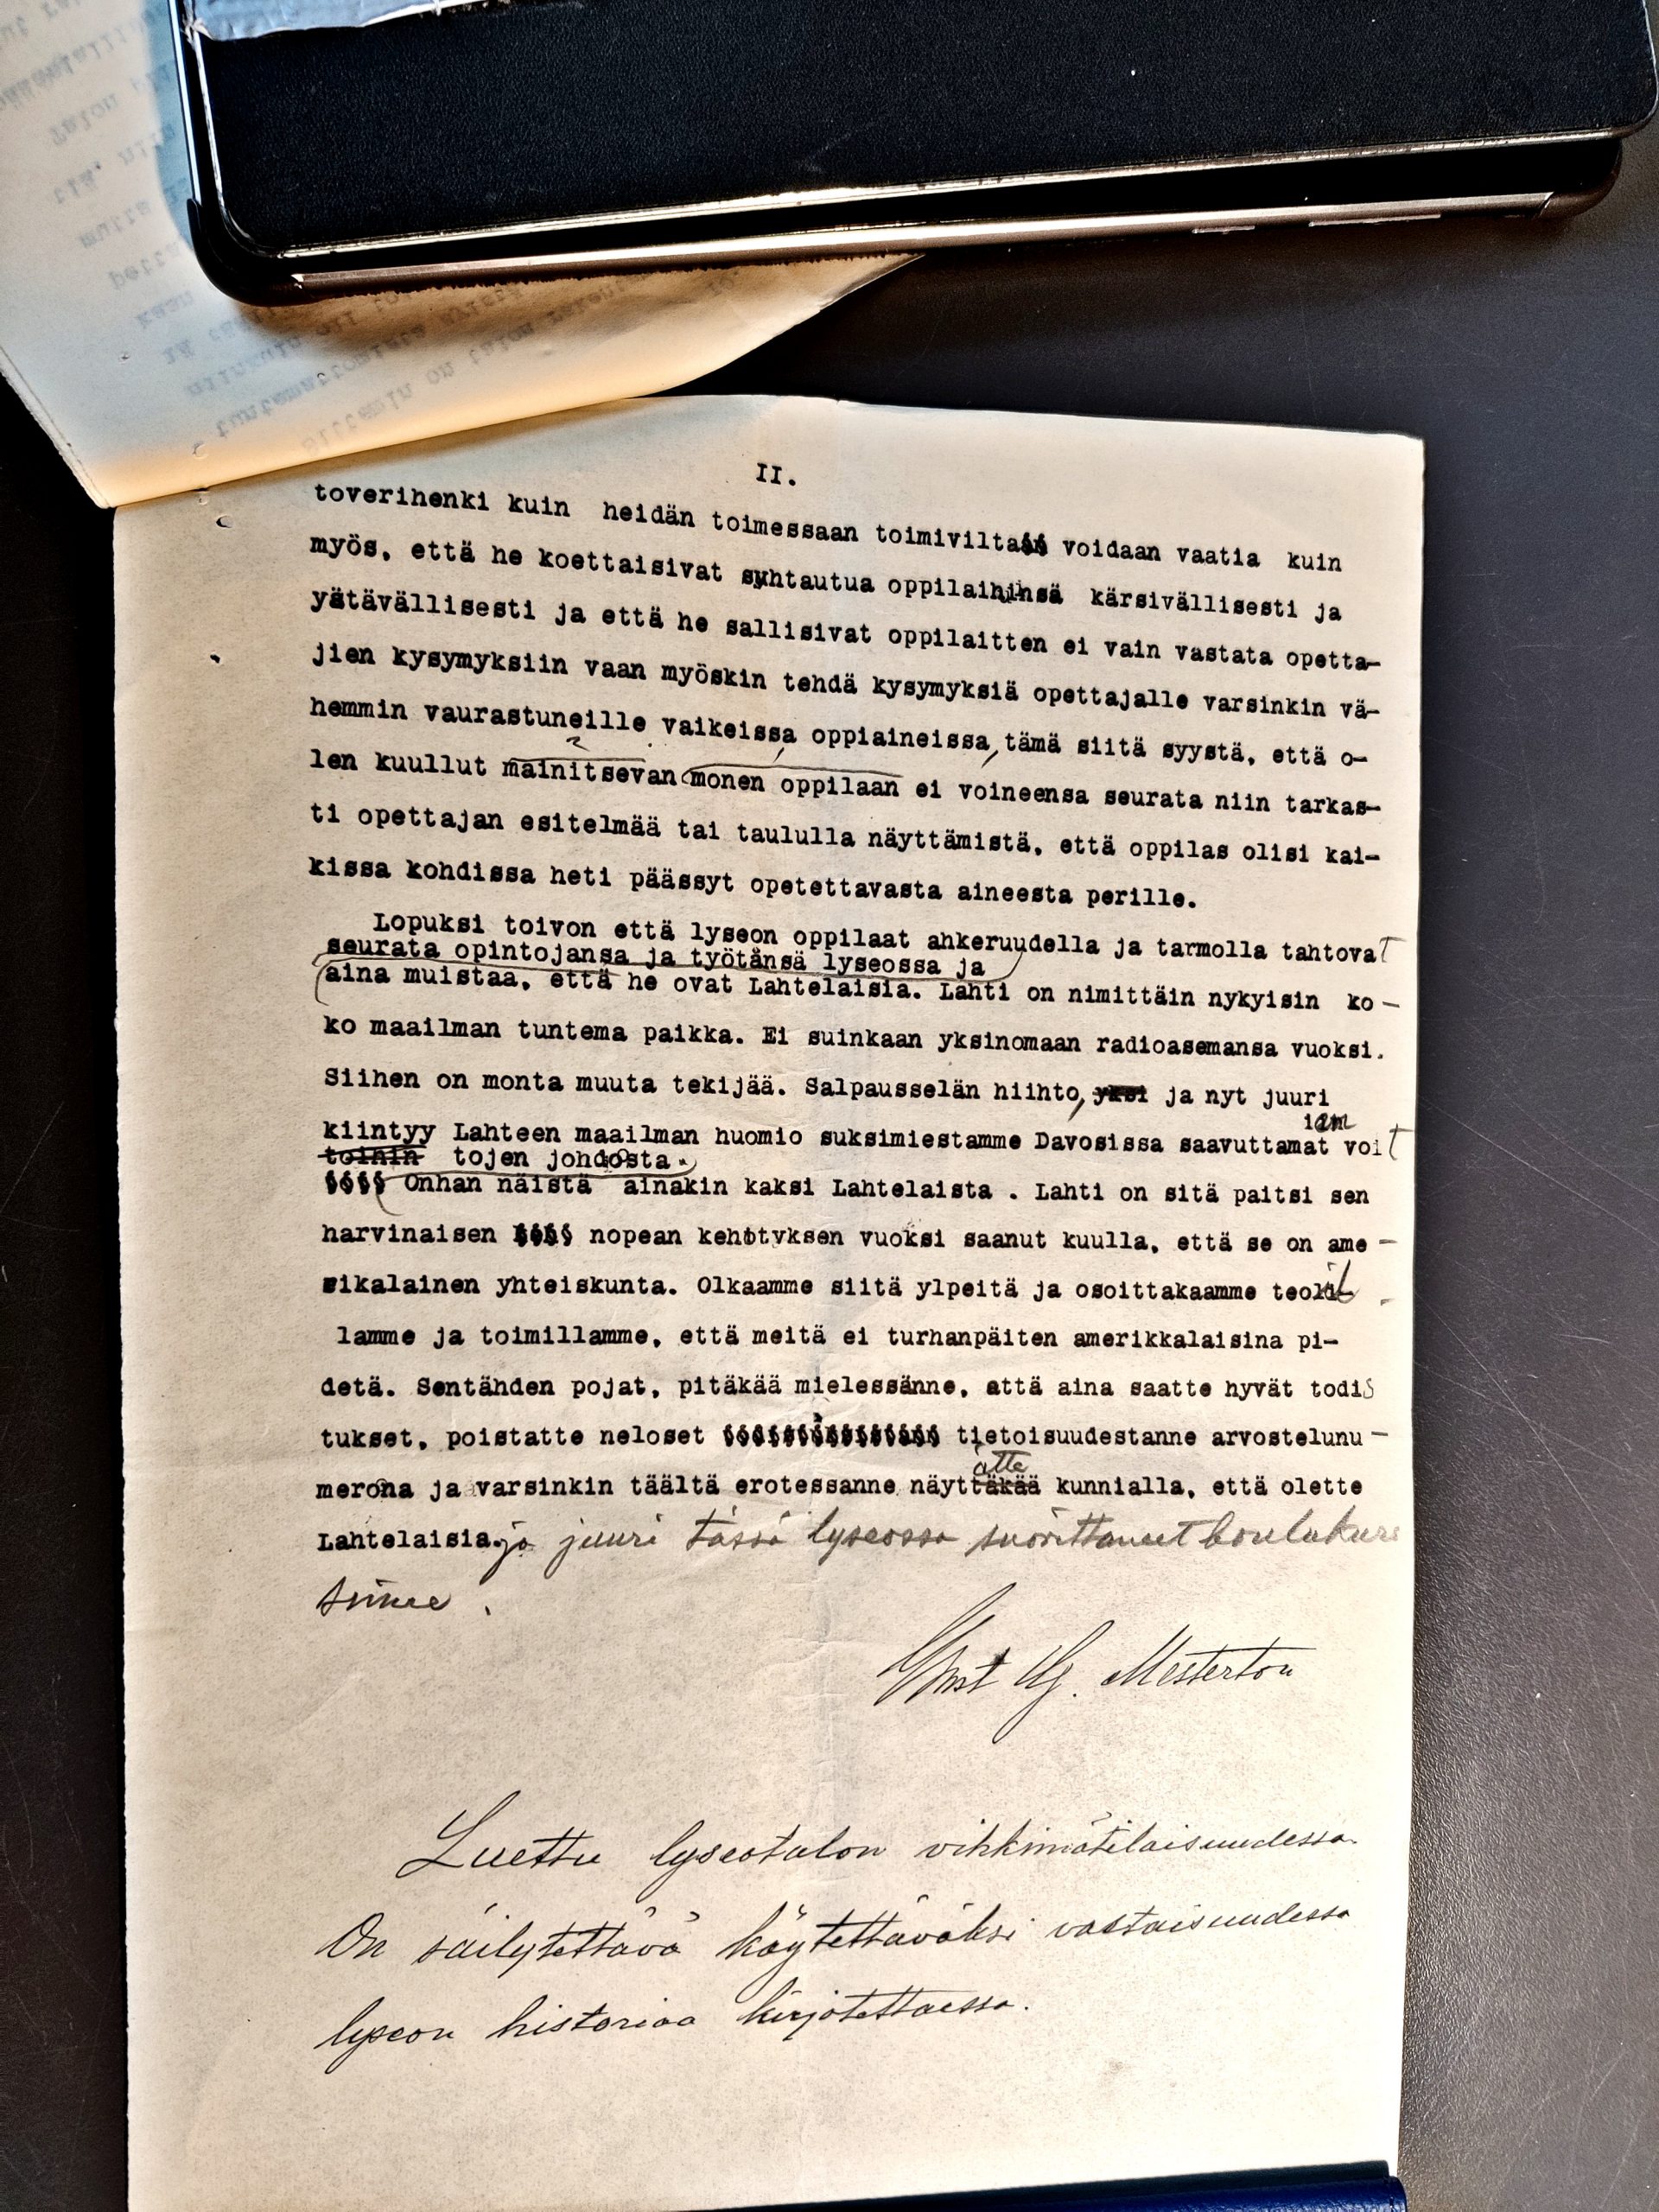 II.
toverihenki kuin heidän toimessaan toimivilta voidaan vaatia kuin
myös, että he koettaisivat suhtautua oppilaihinsä kärsivällisesti ja
yätävällisesti ja että he sallisivat oppilaitten ei vain vastata opetta-
jien kysymyksiin vaan myöskin tehdä kysymyksiä opettajalle varsinkin vä-
hemmin vaurastuneille vaikeissa oppiaineissa, tämä siitä syystä, että o-
len kuullut mainitsevan monen oppilaan ei voineensa seurata niin tarkas-
ti opettajan esitelmää tai taululla näyttämistä, että oppilas olisi kai-
kissa kohdissa heti päässyt opetettavasta aineesta perille.
Lopuksi toivon että lyseon oppilaat ahkeruudella ja tarmolla tahtovat
seurata opintojansa ja työtänsä lyseossa ja
aina muistaa, että he ovat Lahtelaisia. Lahti on nimittäin nykyisin ko-
ko maailman tuntema paikka. Ei suinkaan yksinomaan radioasemansa vuoksi.
Siihen on monta muuta tekijää. Salpausselän hiihto, yksi ja nyt juuri
kiintyy Lahteen maailman huomio suksimiestamme Davosissa saavuttamat voit
toinin tojen johdosta.
Onhan näistä ainakin kaksi Lahtelaista. Lahti on sitä paitsi sen
harvinaisen nopean kehityksen vuoksi saanut kuulla, että se on ame-
rikalainen yhteiskunta. Olkaamme siitä ylpeitä ja osoittakaamme teoil-
lamme ja toimillamme, että meitä ei turhanpäiten amerikkalaisina pi-
detä. Sentähden pojat, pitäkää mielessänne, että aina saatte hyvät todis
tukset, poistatte neloset tietoisuudestanne arvostelunu-
merona ja varsinkin täältä erotessanne näyttäkää atte kunnialla, että olette
Lahtelaisia. ja juuri tässä lyseossa suorittaneet koulukurs
sinne.
Mesterton
Luettu lyseotalon vihkimätilaisuudessa.
On säilytettävä käytettäväksi vastaisuudessa
lyseon historiaa kirjotettaessa.